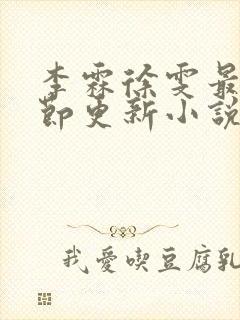 李霖徐雯最
節更新小說
我愛喫豆腐乳